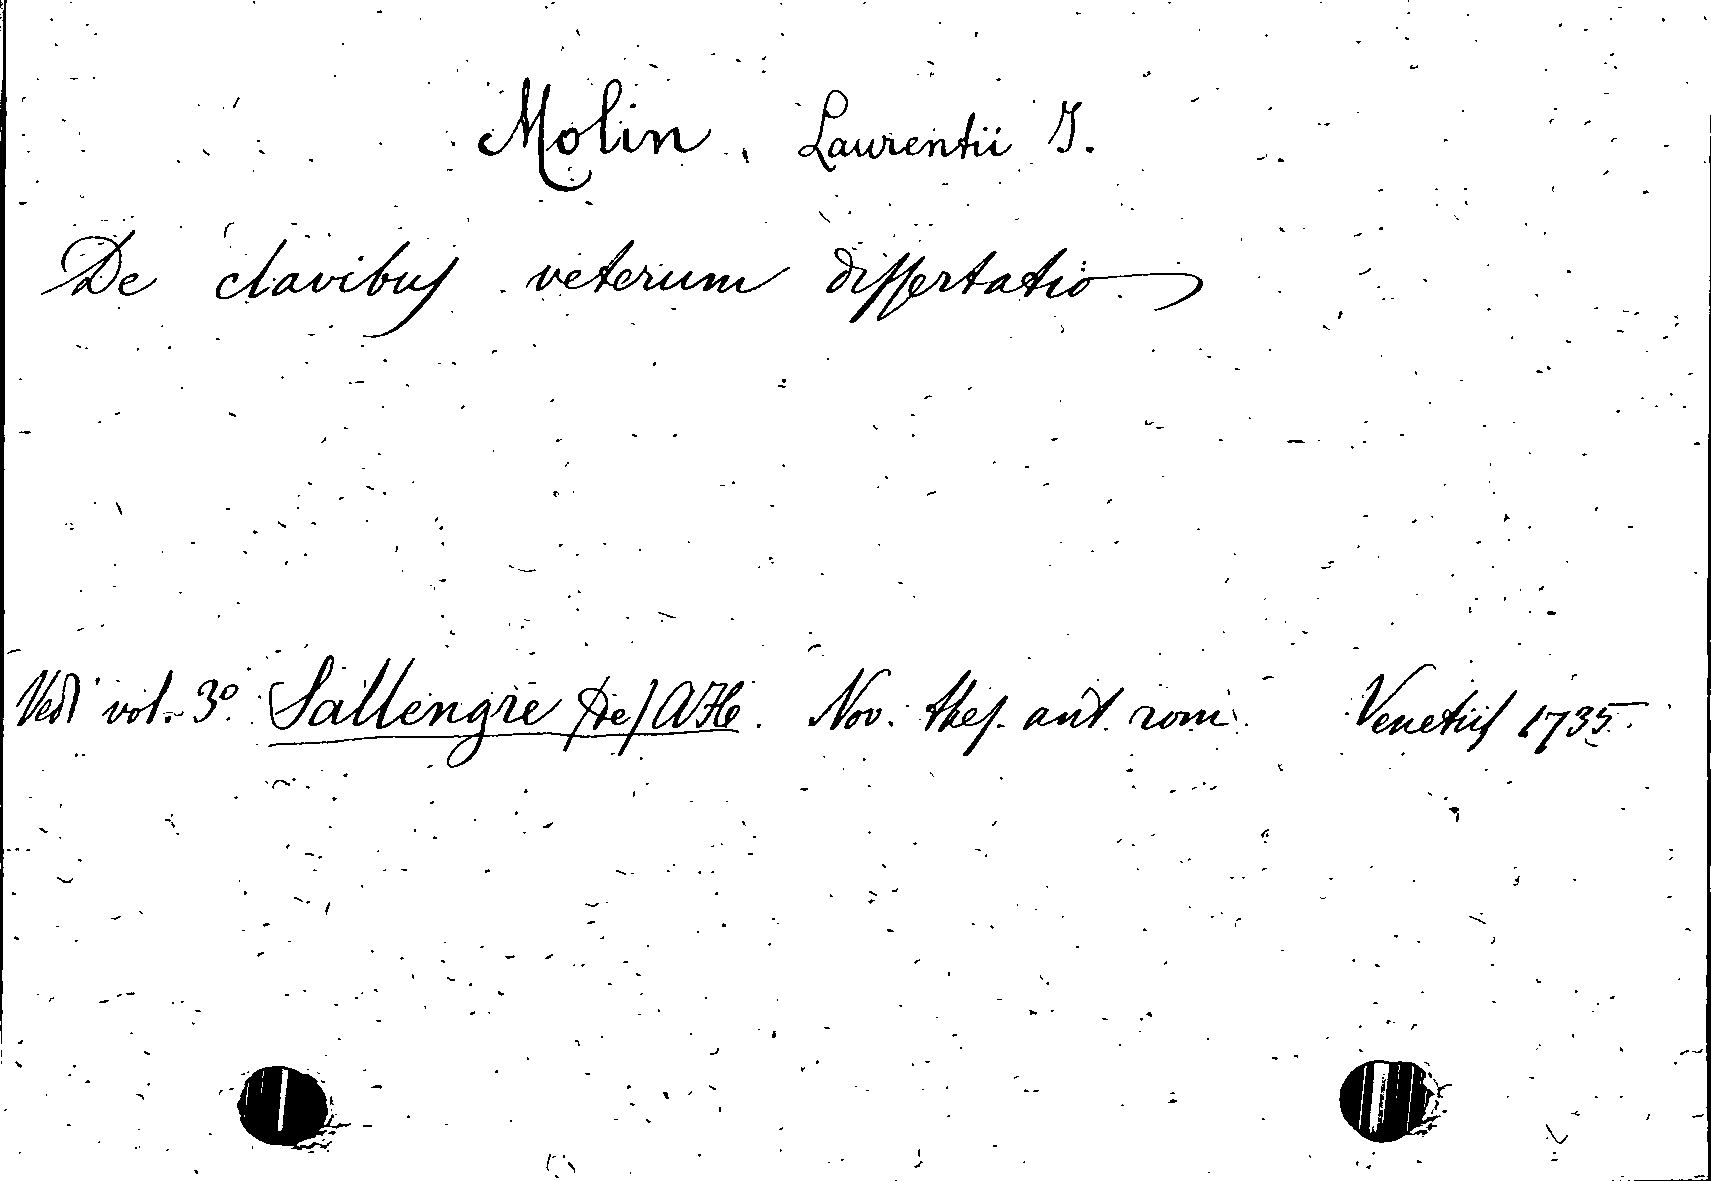 Molin, Laurentii J.
De clavibus veterum dissertatio
Vedi vol. 3º. Sallengre (de) A.H. Nov. thes. ant. rom. Venetiis 1735.